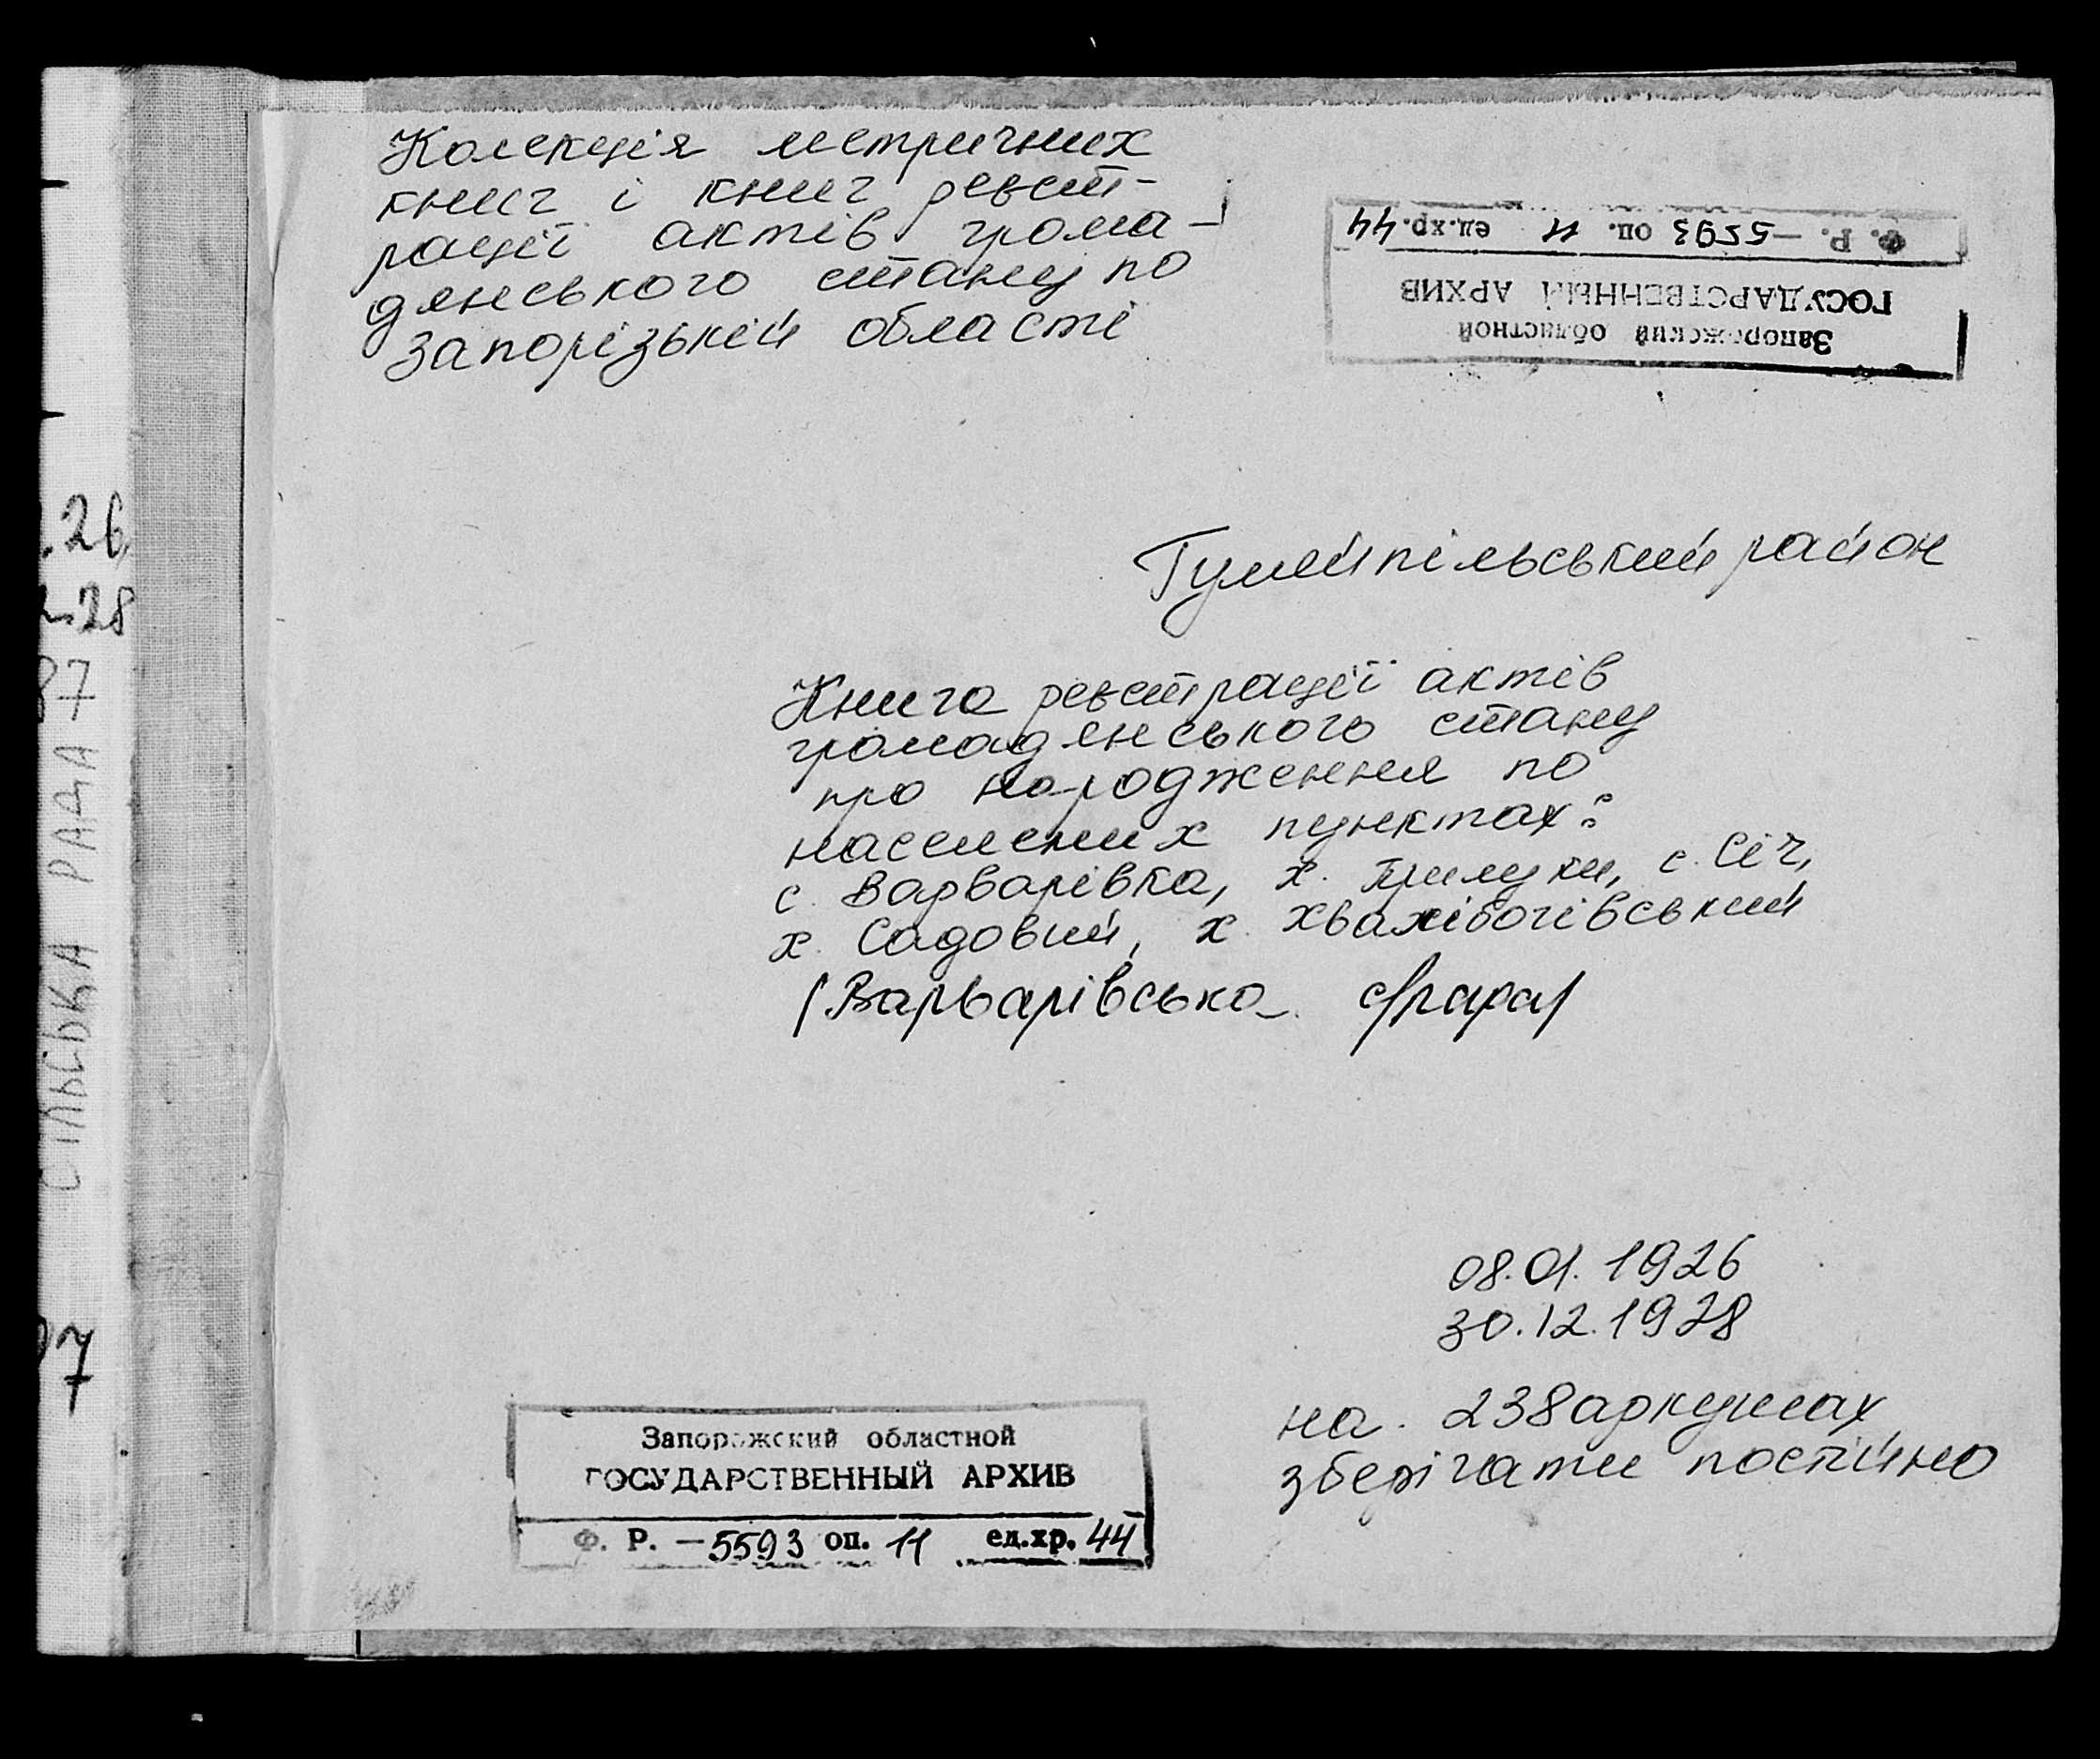 Колекція метричних
книг і книг реєст-
рації актів грома-
дянського стану по
Запорізькій області
Запорожский областной
ГОСУДАРСТВЕННЫЙ АРХИВ
Ф. Р. – 5593 оп. 11 ед.хр. 44
Гуляйпільський район
Книга реєстрації актів
громадянського стану
про народження по
населених пунктах:
с. Варварівка, х. Прилуки, с. Січ,
х. Садовий, х. Хвалібогівський
/Варварівська с/рада/
08.01.1926
30.12.1928
на 238 аркушах
зберігати постійно
Запорожский областной
ГОСУДАРСТВЕННЫЙ АРХИВ
Ф. Р. – 5593 оп. 11 ед.хр. 44
.26
28
87
СІЛЬСЬКА РАДА
7